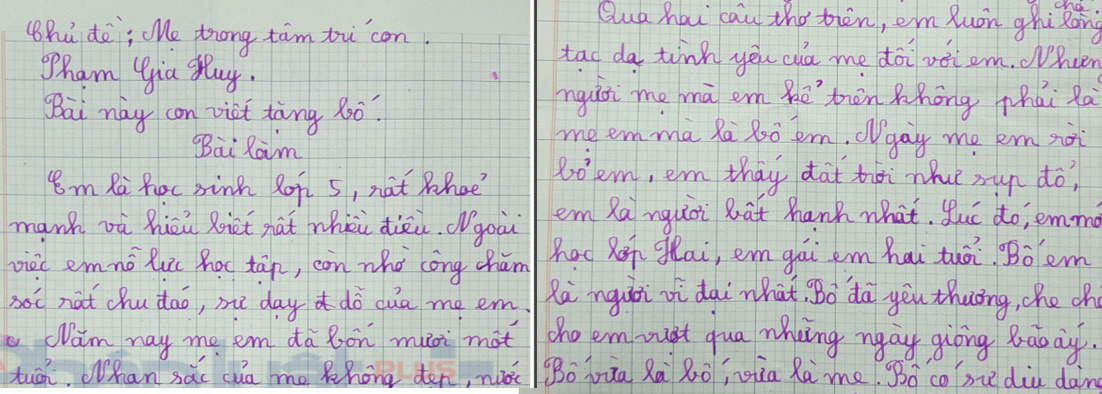 Chủ đề: Mẹ trong tâm trí con.
Phạm Gia Huy.
Bài này con viết tặng bố.
Bài làm
Em là học sinh lớp 5, rất khoẻ
mạnh và hiểu biết rất nhiều điều. Ngoài
việc em nỗ lực học tập, còn nhờ công chăm
sóc rất chu đáo, sự dạy dỗ của mẹ em.
Năm nay mẹ em đã bốn mươi mốt
tuổi. Nhan sắc của mẹ không đẹp, nước
cha.
Qua hai câu thơ trên, em luôn ghi lòng
tạc dạ tình yêu của mẹ đối với em. Nhưng
người mẹ mà em kể trên không phải là
mẹ em mà là bố em. Ngày mẹ em rời
bỏ em, em thấy đất trời như sụp đổ,
em là người bất hạnh nhất. Lúc đó, em mớ
học lớp Hai, em gái em hai tuổi. Bố em
là người vĩ đại nhất. Bố đã yêu thương, che ch
cho em vượt qua những ngày giông bão ấy.
Bố vừa là bố, vừa là mẹ. Bố có sự dịu dàng